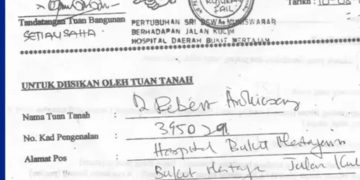 Tarikh :
Tandatangan Tuan Bangunan
SETIAUSAHA
PERTUBUHAN SRI DEWA MUNISWARAR
BERHADAPAN JALAN KULIM
HOSPITAL DAERAH BUKIT MERTAJAM
UNTUK DIISIKAN OLEH TUAN TANAH
Nama Tuan Tanah :
No. Kad Pengenalan : 395029
Alamat Pos : Hospital Bukit Mertajam
Bukit Mertajam Jalan Kul